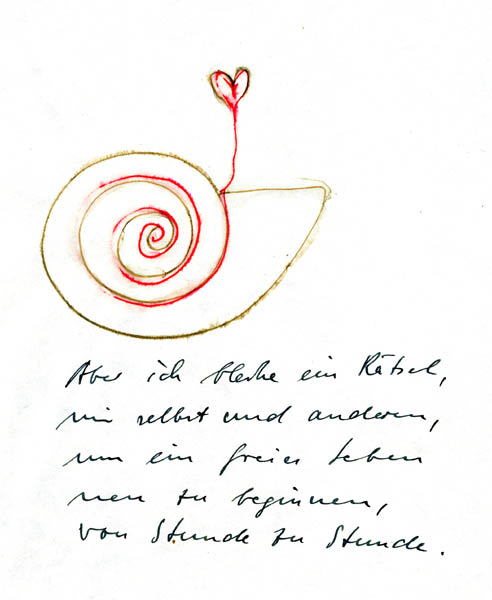 Aber ich bleibe ein Rätsel,
mir selbst und anderen,
um ein freies Leben
neu zu beginnen,
von Stunde zu Stunde.